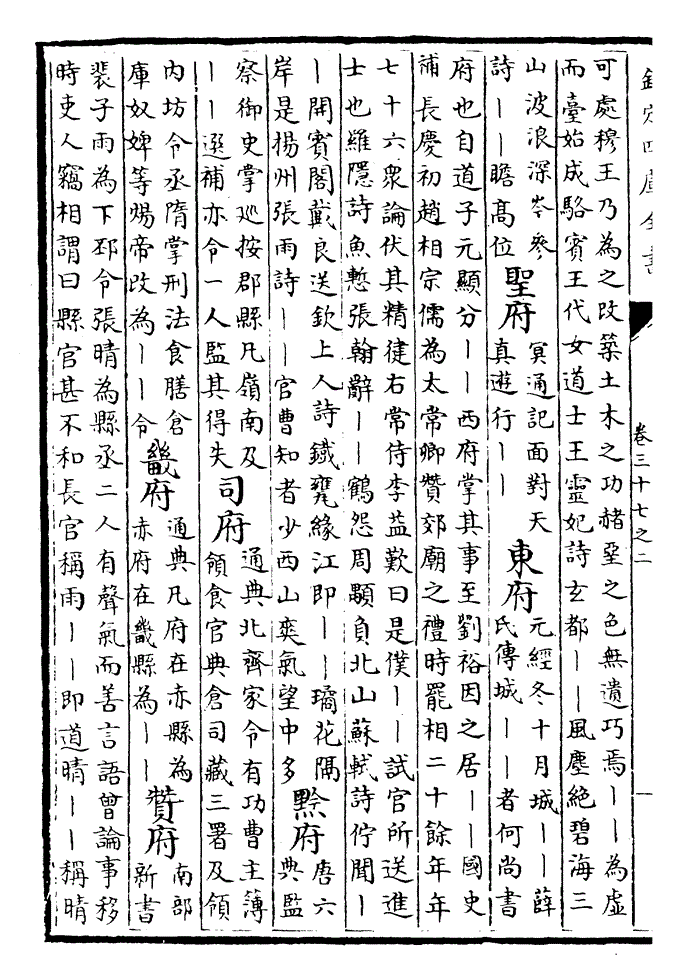 欽定四庫全書
卷三十七之二
一
可處穆王乃為之改築土木之功赭堊之色無遺巧焉丨丨為虛
而臺始成駱賓王代女道士王靈妃詩玄都丨丨風塵絕碧海三
山波浪深岑參
詩丨丨瞻高位
聖府
冥通記面對天
真遊行丨丨
東府
元經冬十月城丨丨薛
氏傳城丨丨者何尚書
府也自道子元顯分丨丨西府掌其事至劉裕因之居丨丨國史
補長慶初趙相宗儒為太常卿贊郊廟之禮時罷相二十餘年年
七十六衆論伏其精健右常侍李益歎曰是僕丨丨試官所送進
士也羅隱詩魚慙張翰辭丨丨鶴怨周顒負北山蘇軾詩佇聞丨
丨開賓閣戴良送欽上人詩鐵甕緣江即丨丨璚花隔
岸是揚州張雨詩丨丨官曹知者少西山爽氣望中多
黔府
唐六
典監
察御史掌巡按郡縣凡嶺南及
丨丨選補亦令一人監其得失
司府
通典北齊家令有功曹主簿
領食官典倉司藏三署及領
内坊令丞隋掌刑法食膳倉
庫奴婢等煬帝改為丨丨令
畿府
通典凡府在赤縣為
赤府在畿縣為丨丨
贊府
南部
新書
裴子雨為下邳令張晴為縣丞二人有聲氣而善言語曾論事移
時吏人竊相謂曰縣官甚不和長官稱雨丨丨即道晴丨丨稱晴